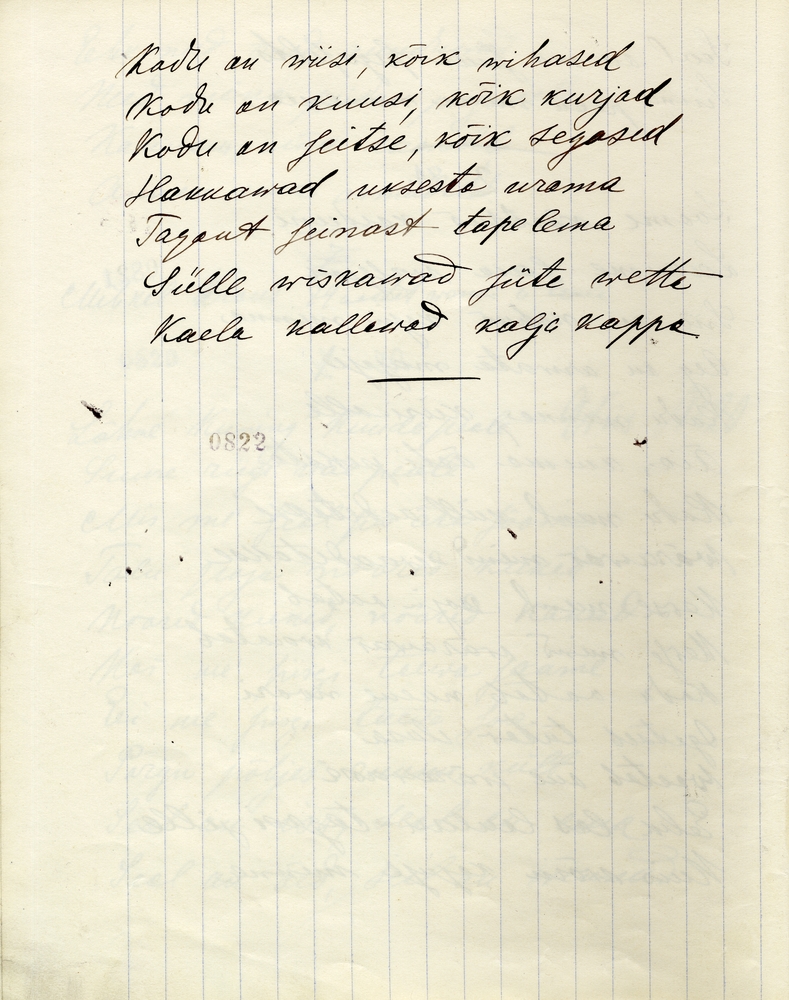 Kodu on wiisi, kõik wihased
Kodu on kuusi, kõik kurjad
Kodu on seitse, kõik segased
Hakkawad uksesta urama
Tagant seinast tapelema
Sülle wiskawad süte wetta
Kaela kallawad kalja kappa
0822